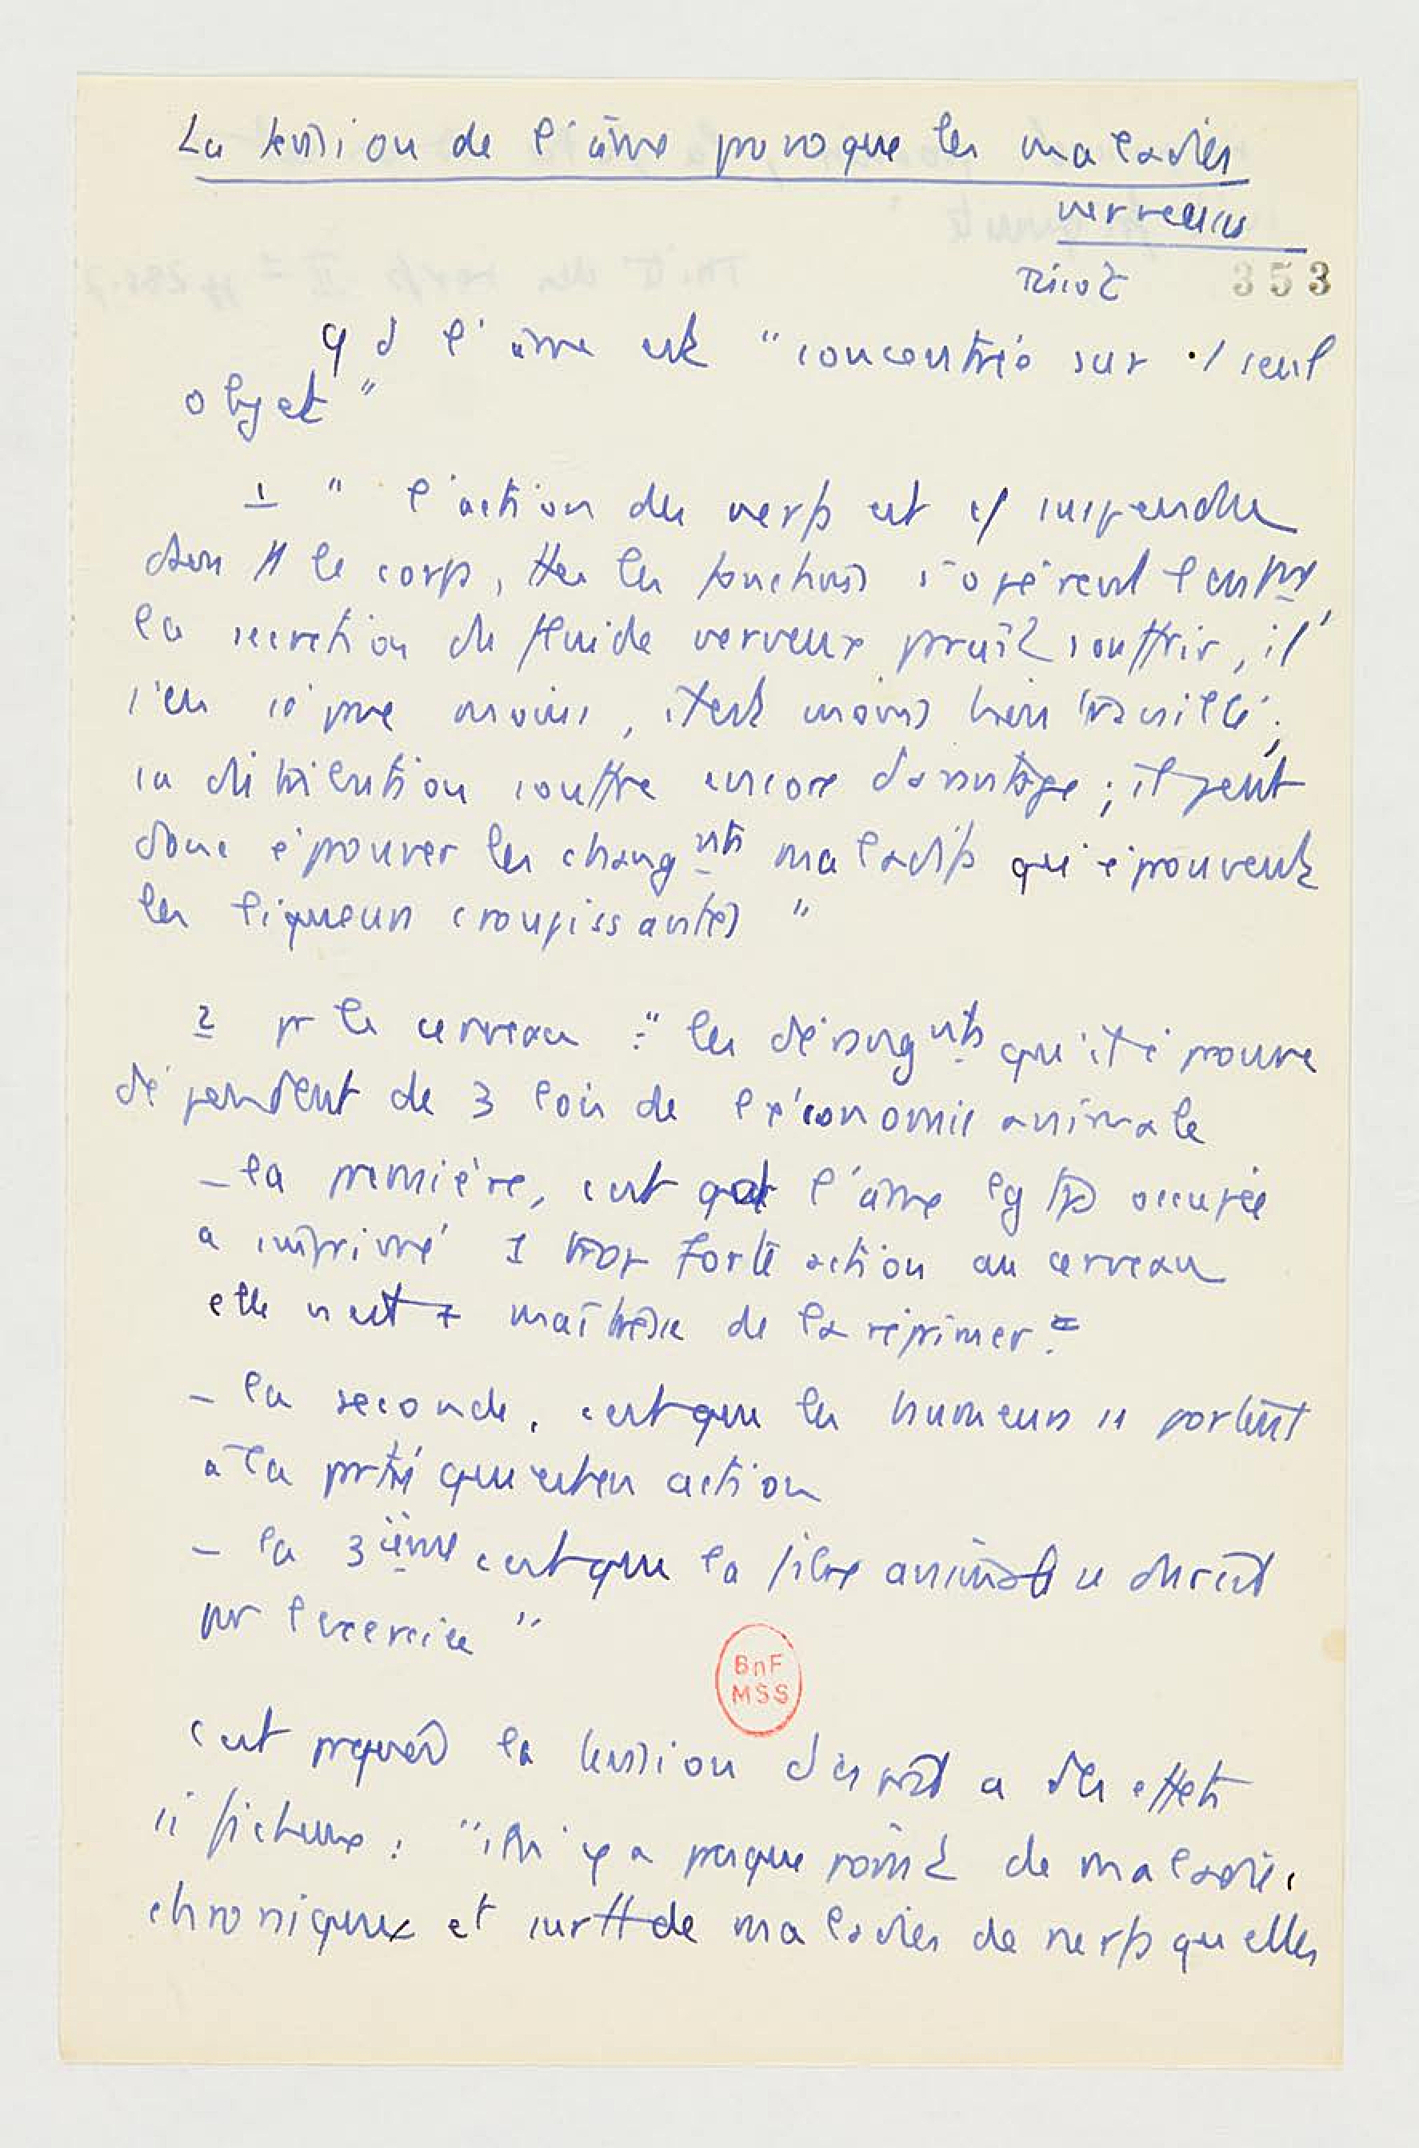 La tension de l'âme provoque les maladies
nerveuses
Tissot
353
qd l'âme est "concentrée sur 1 seul
objet"
1 " l'action des nerfs est suspendue
dans tt le corps, ttes les fonctions s'opèrent lentmt,
la secretion du fluide nerveux paraît souffrir, il
s'en sépare moins, il est moins bien travaillé;
sa distribution souffre encore davantage; il peut
donc éprouver les changmts maladifs qu'éprouvent
les liqueurs croupissantes"
2 pr le cerveau : "les dérangmts qu'il éprouve
dépendent de 3 lois de l'économie animale
- la première, c'est qd l'âme lgtps occupée
a imprimé 1 trop forte action au cerveau
elle n'est + maîtresse de la réprimer
- la seconde, c'est que les humeurs se portent
à la partie qui est en action
- la 3ième c'est que la fibre animale se durcit
par l'exercice"
c'est prquoi la tension d'esprit a des effets
si fâcheux : "il n'y a presque point de maladies
chroniques et surtt de maladies de nerfs qu'elles
BnF
MSS